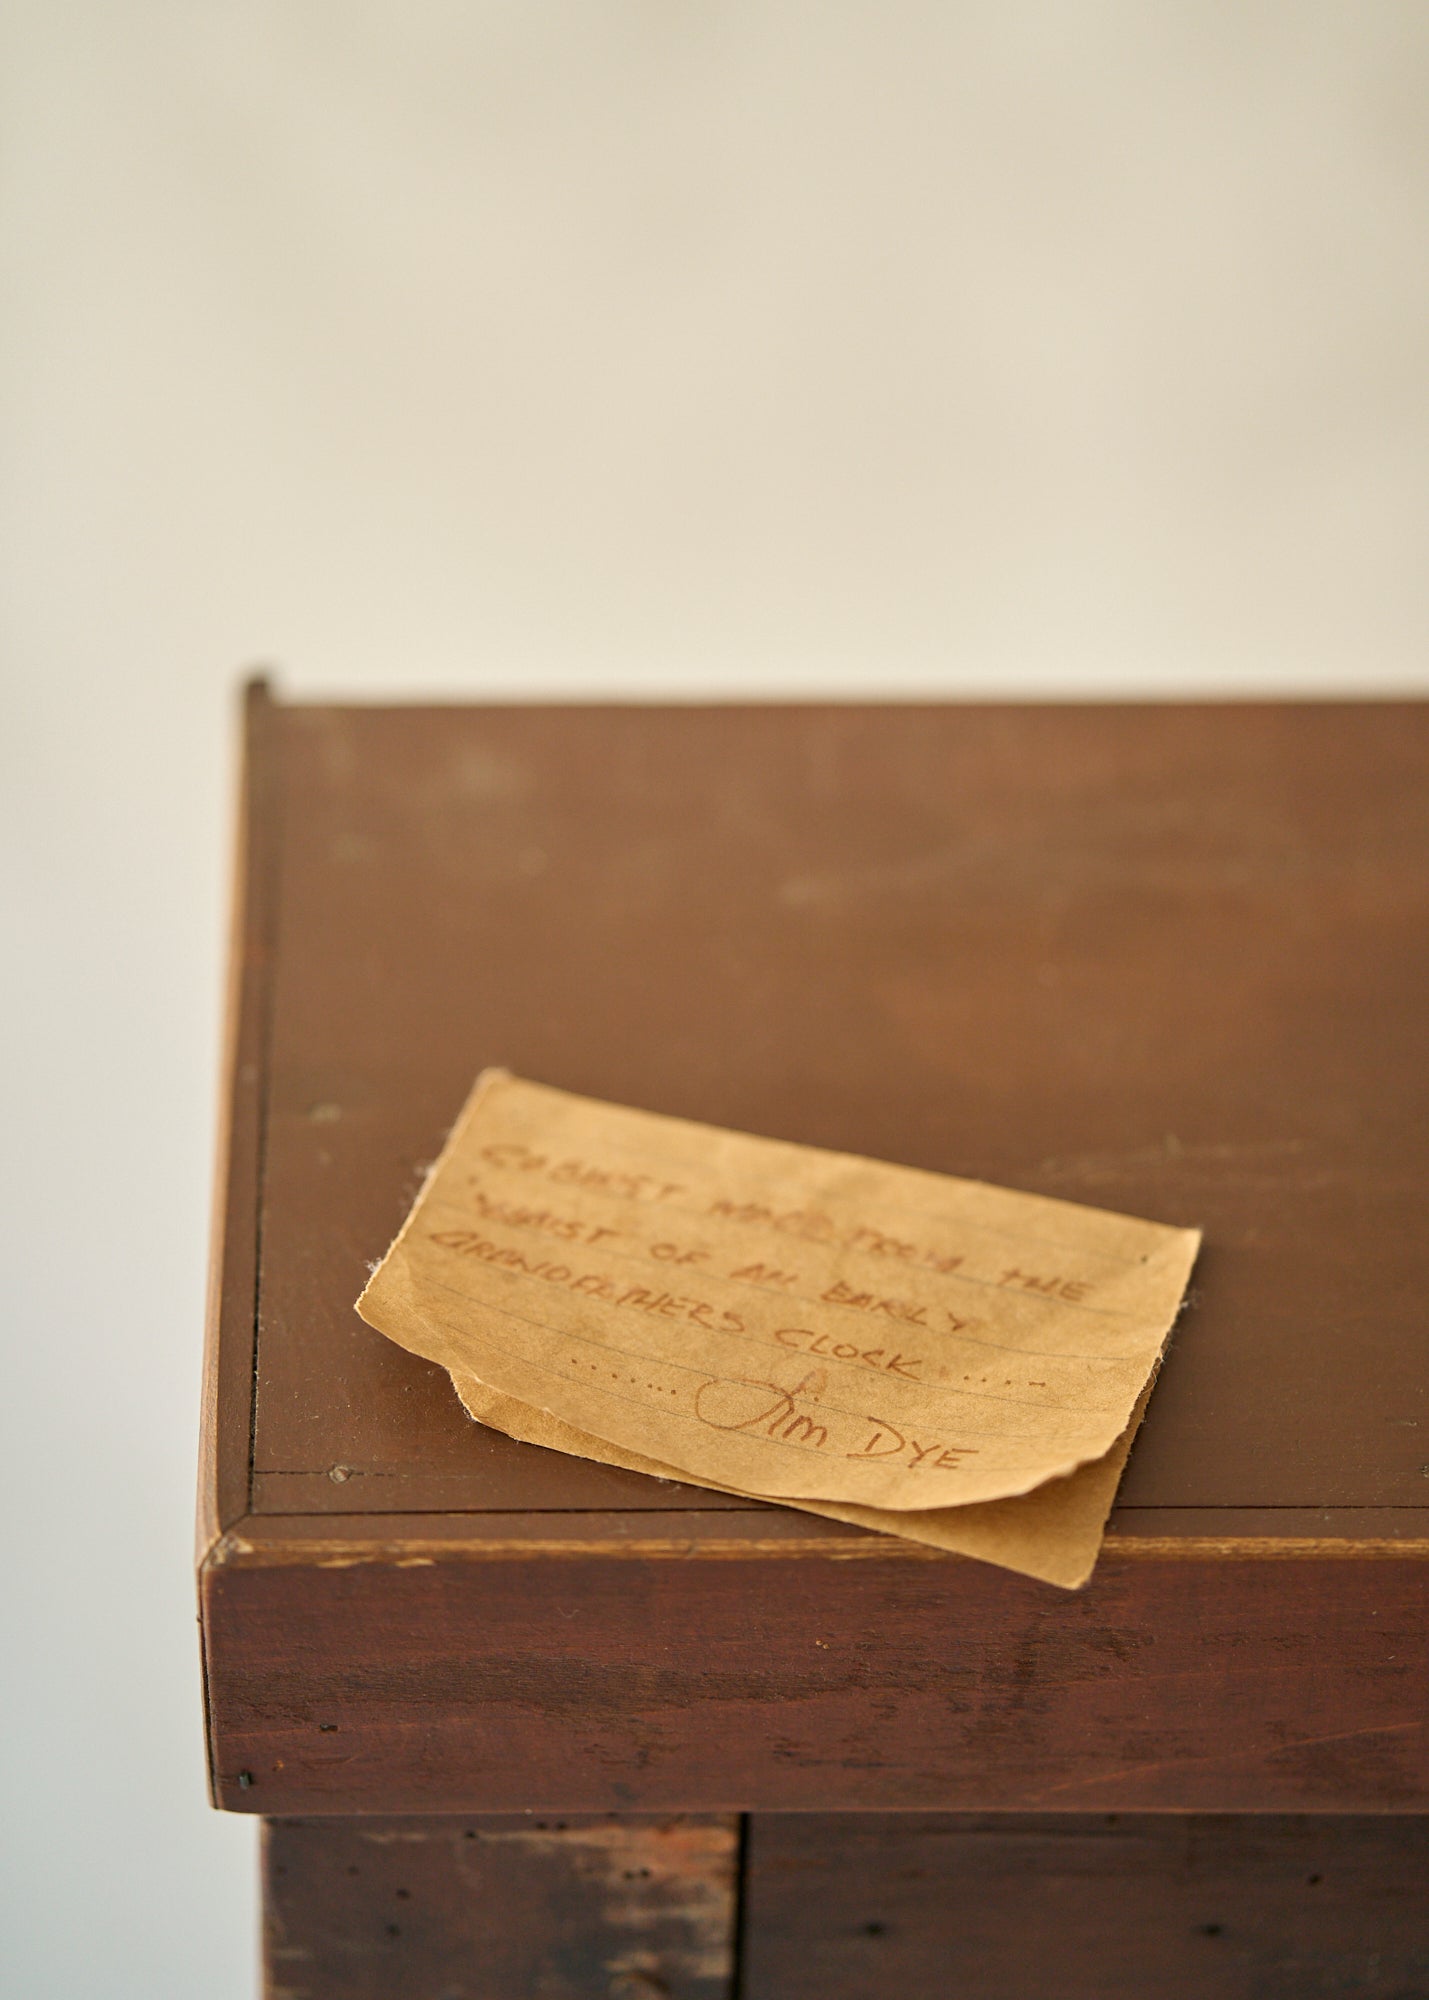 CABINET MADE FROM THE
"WAIST OF AN EARLY
GRANDFATHERS CLOCK.....
....... Jim DYE